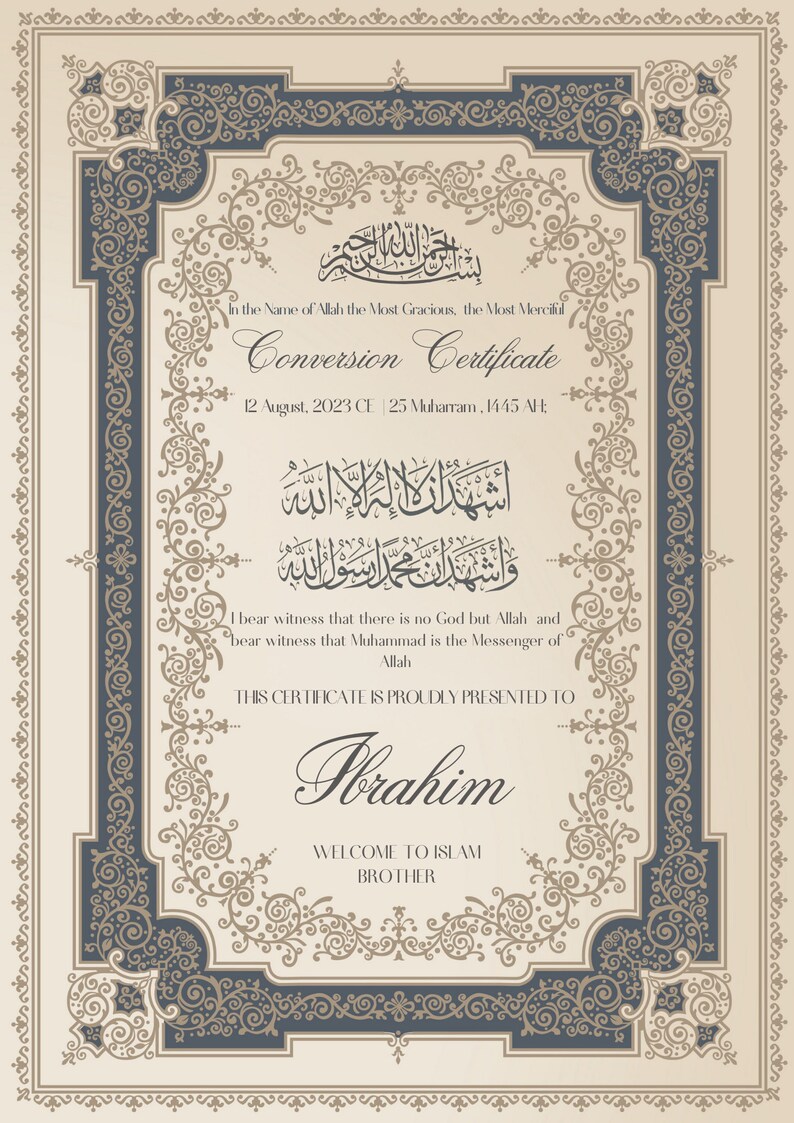 بسم الله الرحمن الرحيم
In the Name of Allah the Most Gracious, the Most Merciful
Conversion Certificate
12 August, 2023 CE | 25 Muharram , 1445 AH;
أَشْهَدُ أَنْ لَا إِلٰهَ إِلَّا اللهُ
وَأَشْهَدُ أَنَّ مُحَمَّدًا رَسُولُ اللهِ
I bear witness that there is no God but Allah and
bear witness that Muhammad is the Messenger of
Allah
THIS CERTIFICATE IS PROUDLY PRESENTED TO
Ibrahim
WELCOME TO ISLAM
BROTHER